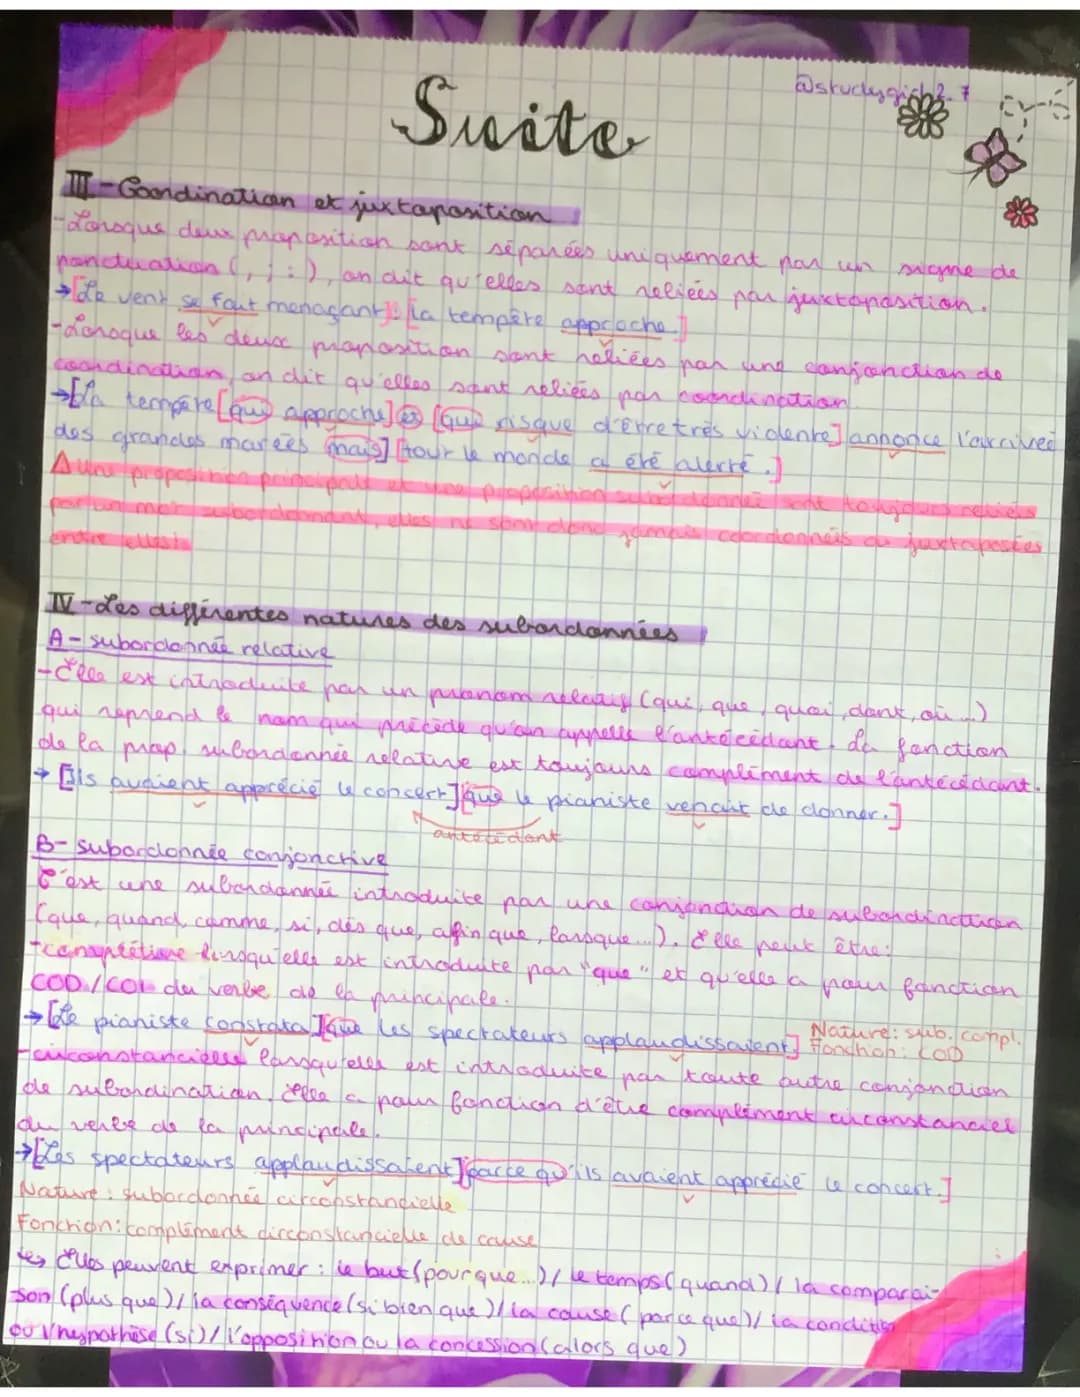 @studygirl2.7
Suite
III-Coordination et juxtaposition
-Lorsque deux proposition sont séparées uniquement par un signe de
ponctuation (, ; :), on dit qu'elles sont reliées par juxtaposition.
→[Le vent se fait menaçant]: [la tempête approche.]
-Lorsque les deux proposition sont reliées par une conjonction de
coordination, on dit qu'elles sont reliées par coordination
→[La tempête [qui approche] et [qui risque d'être très violente] annonce l'arrivée
des grandes marées mais] [tout le monde a été alerté.]
⚠ Une proposition principale et une proposition subordonnée sont toujours reliées
par un mot subordonnant, elles ne sont donc jamais coordonnées ou juxtaposées
entre elles!
IV-Les différentes natures des subordonnées
A- subordonnée relative
-Elle est introduite par un pronom relatif (qui, que, quoi, dont, où ...)
qui reprend le nom qui précède qu'on appelle l'antécédant. La fonction
de la prop. subordonnée relative est toujours complément de l'antécédant.
→ [Ils avaient apprécié le concert] [que le pianiste venait de donner.]
antécédant
B- subordonnée conjonctive
C'est une subordonnée introduite par une conjonction de subordination
(que, quand, comme, si, dès que, afin que, lorsque...). Elle peut être:
-complétive lorsqu'elle est introduite par "que" et qu'elle a pour fonction
COD/COI du verbe de la principale.
→[Le pianiste constata] [que les spectateurs applaudissaient] Nature: sub. compl.
Fonction: COD
-circonstancielle lorsqu'elle est introduite par toute autre conjonction
de subordination. Elle a pour fonction d'être complément circonstanciel
du verbe de la principale.
→[Les spectateurs applaudissaient] [parce qu'ils avaient apprécié le concert.]
Nature: subordonnée circonstancielle
Fonction: complément circonstancielle de cause
↳ Elles peuvent exprimer: le but (pour que...)/ le temps (quand) / la comparai-
son (plus que)/ la conséquence (si bien que)/ la cause (parce que)/ la condition
ou l'hypothèse (si)/ l'opposition ou la concession (alors que)